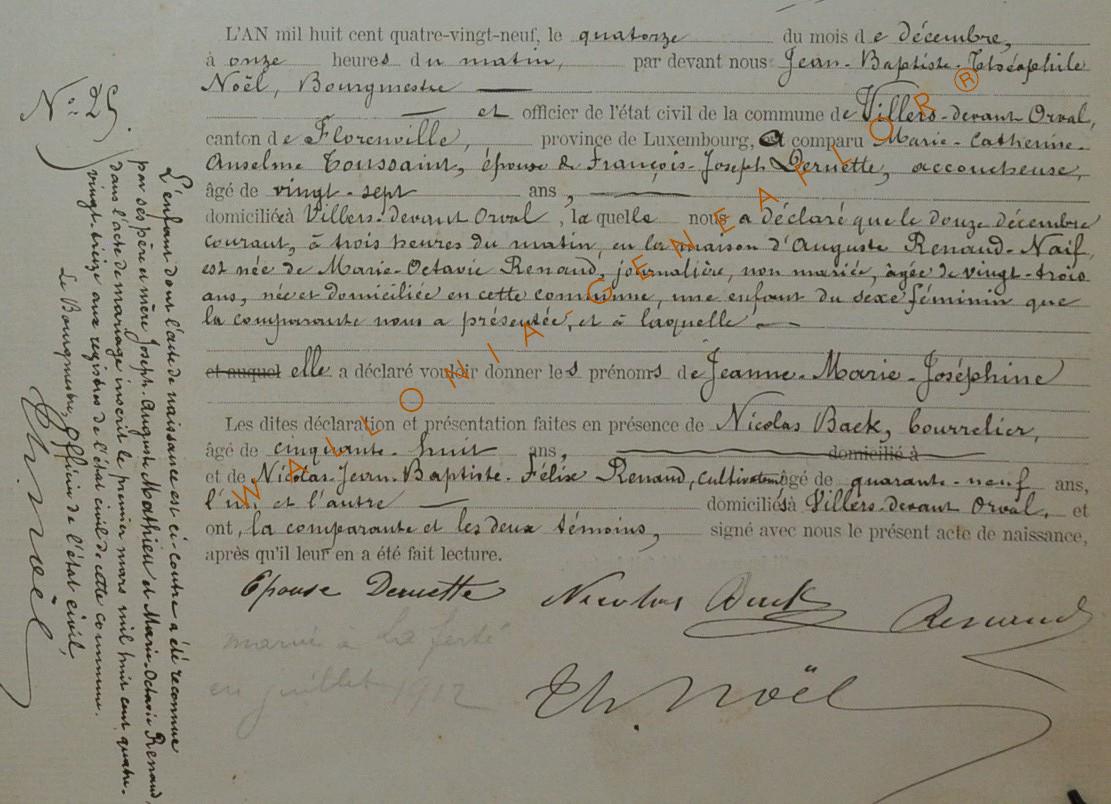 L'AN mil huit cent quatre-vingt-neuf, le quatorze du mois de décembre,
à onze heures du matin, par devant nous Jean-Baptiste-Théophile
Noël, Bourgmestre
et officier de l'état civil de la commune de Villers-devant Orval,
canton de Florenville, province de Luxembourg, a comparu Marie-Catherine-
Anselme Toussaint, épouse de François-Joseph Deruette, accoucheuse,
âgé de vingt-sept ans,
domiciliée à Villers-devant Orval, laquelle nous a déclaré que le douze décembre
courant, à trois heures du matin, en la maison d'Auguste Renaud-Naif,
est née de Marie-Octavie Renaud, journalière, non mariée, âgée de vingt-trois
ans, née et domiciliée en cette commune, une enfant du sexe féminin que
la comparante nous a présentée, et à laquelle
et auquel elle a déclaré vouloir donner les prénoms de Jeanne-Marie-Joséphine
Les dites déclaration et présentation faites en présence de Nicolas Back, bourrelier,
âgé de cinquante-huit ans, domicilié à
et de Nicolas-Jean-Baptiste-Félix Renaud, cultivateur âgé de quarante-neuf ans,
l'un et l'autre domiciliés à Villers-devant Orval, et
ont, la comparante et les deux témoins, signé avec nous le présent acte de naissance,
après qu'il leur en a été fait lecture.
Epouse Deruette Nicolas Back Renaud
mariée a La ferté
en juillet 1912
Th. Noël
No. 25.
L'enfant dont l'acte de naissance est ci-contre a été reconnue
par ses père et mère Joseph-Auguste Mathieu et Marie-Octavie Renaud,
dans l'acte de mariage inscrit le premier mars mil huit cent quatre-
vingt-treize aux registres de l'état civil de cette commune.
Le Bourgmestre, Officier de l'état civil,
Th. Noël
WALLONIA-GENEAFLOR®